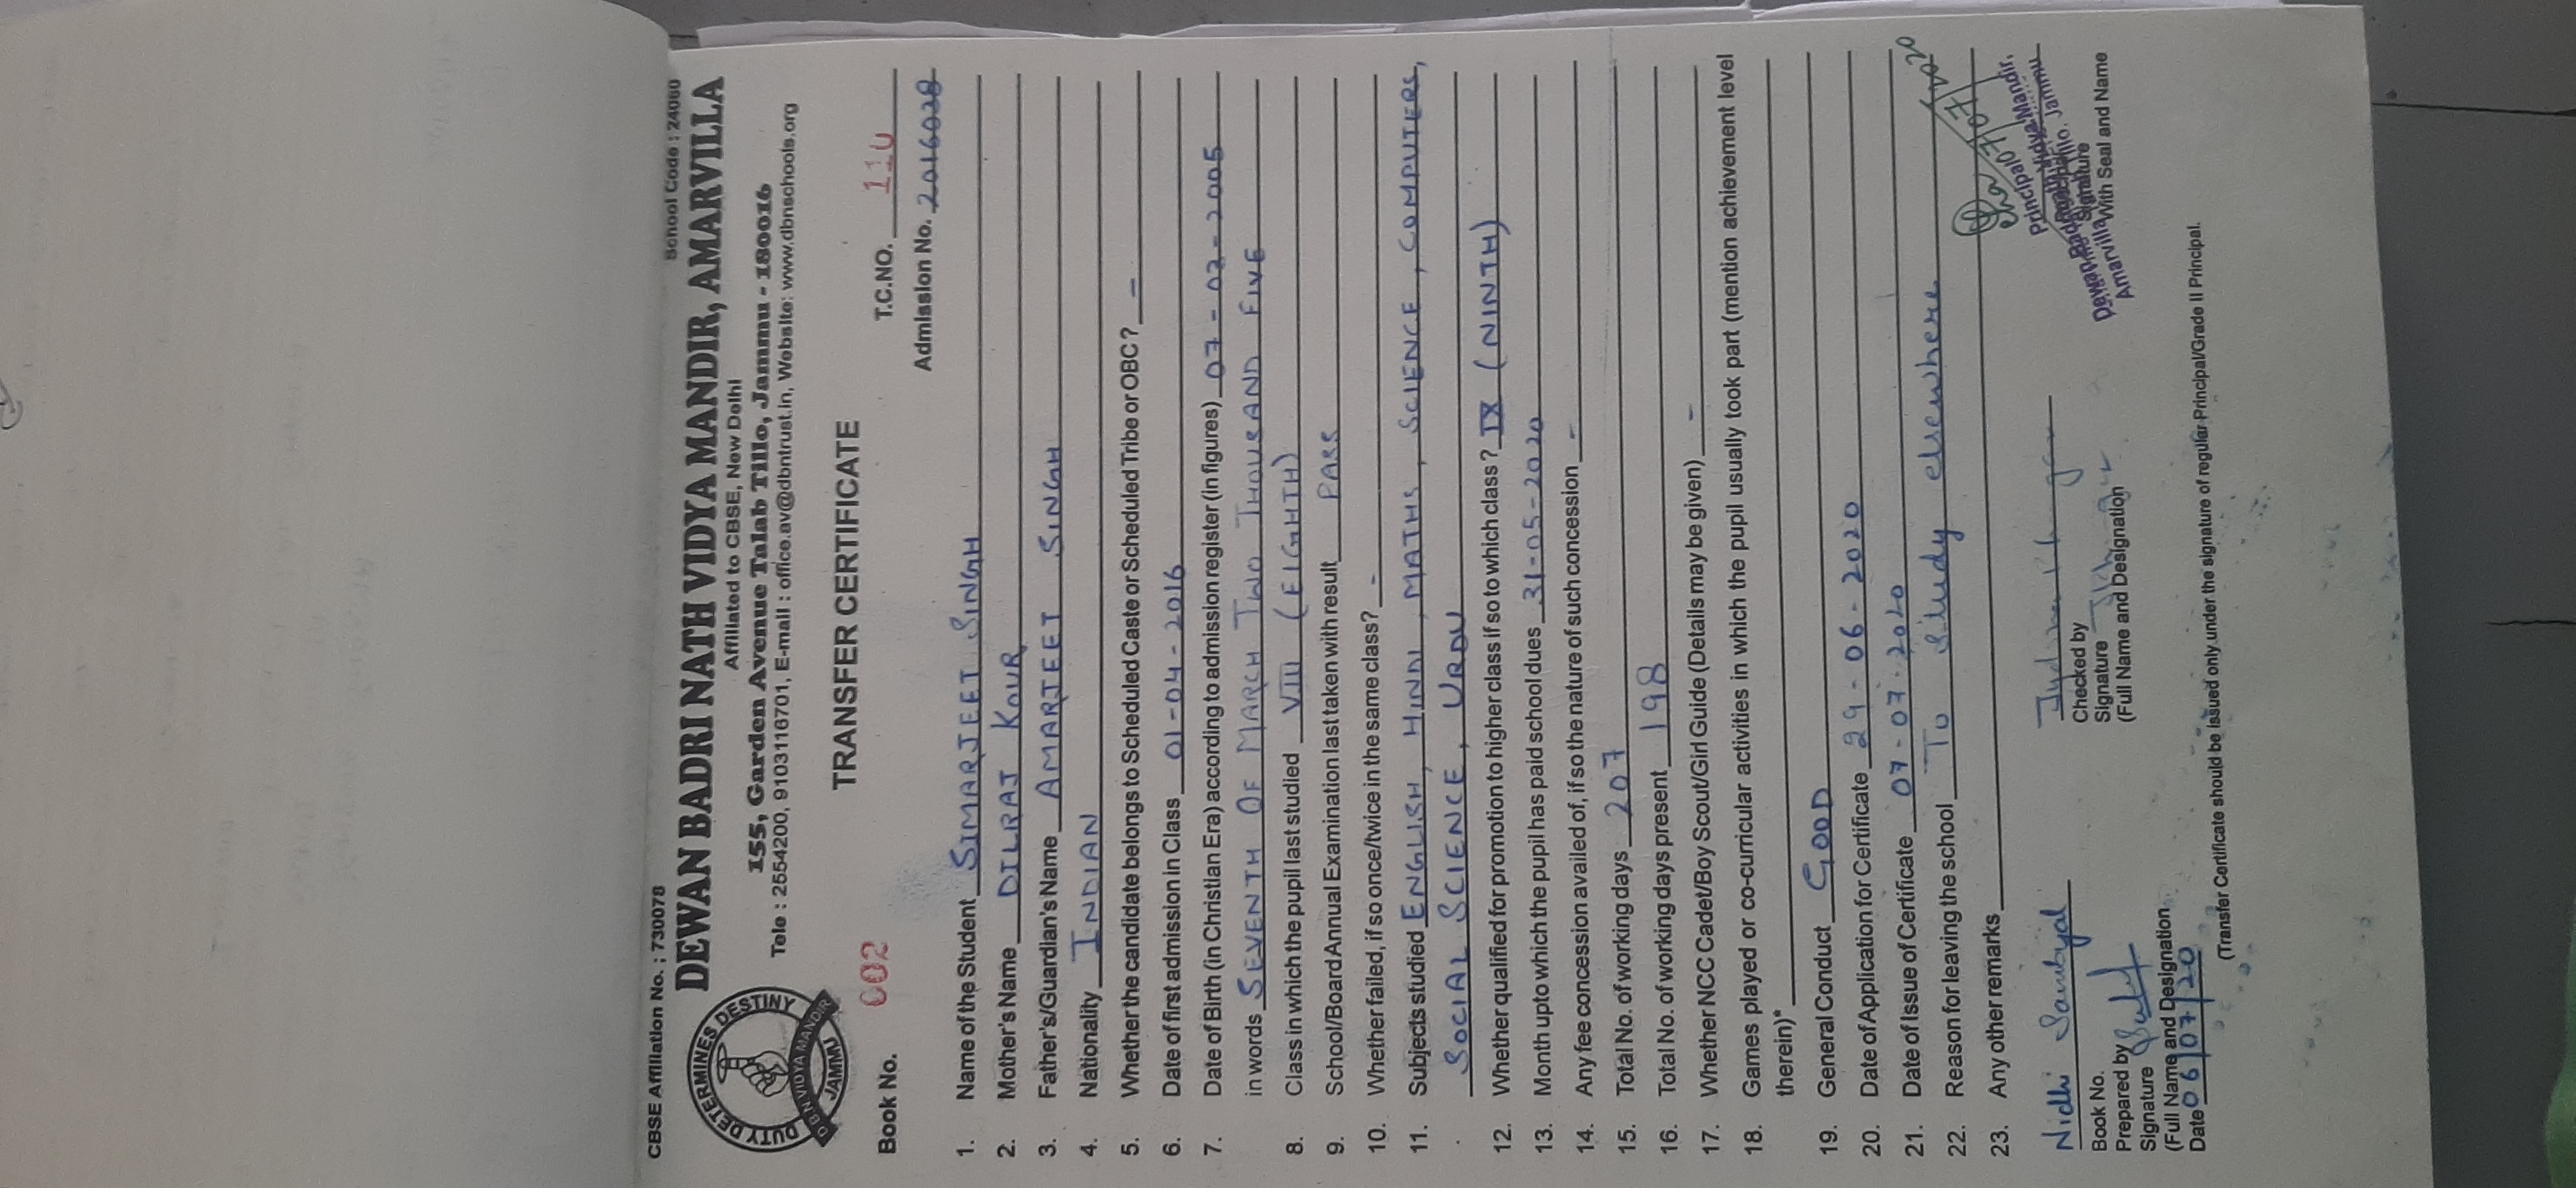 CBSE Affiliation No. : 730078 School Code : 24060
DEWAN BADRI NATH VIDYA MANDIR, AMARVILLA
Affiliated to CBSE, New Delhi
155, Garden Avenue Talab Tillo, Jammu - 180016
Tele : 2554200, 9103116701, E-mail : office.av@dbntrust.in, Website: www.dbnschools.org
DUTY DETERMINES DESTINY
D B N VIDYA MANDIR
JAMMU
TRANSFER CERTIFICATE
Book No. 002 T.C.NO. 110
Admission No. 2016028
1. Name of the Student SIMARJEET SINGH
2. Mother's Name DILRAJ KOUR
3. Father's/Guardian's Name AMARJEET SINGH
4. Nationality INDIAN
5. Whether the candidate belongs to Scheduled Caste or Scheduled Tribe or OBC? -
6. Date of first admission in Class 01-04-2016
7. Date of Birth (in Christian Era) according to admission register (in figures) 07-03-2005
in words SEVENTH OF MARCH TWO THOUSAND FIVE
8. Class in which the pupil last studied VIII (EIGHTH)
9. School/Board Annual Examination last taken with result PASS
10. Whether failed, if so once/twice in the same class? -
11. Subjects studied ENGLISH, HINDI, MATHS, SCIENCE, COMPUTERS,
SOCIAL SCIENCE, URDU
12. Whether qualified for promotion to higher class if so to which class? IX (NINTH)
13. Month upto which the pupil has paid school dues 31-05-2020
14. Any fee concession availed of, if so the nature of such concession -
15. Total No. of working days 207
16. Total No. of working days present 198
17. Whether NCC Cadet/Boy Scout/Girl Guide (Details may be given) -
18. Games played or co-curricular activities in which the pupil usually took part (mention achievement level
therein)*
19. General Conduct GOOD
20. Date of Application for Certificate 29-06-2020
21. Date of Issue of Certificate 07-07-2020
22. Reason for leaving the school To Study elsewhere
23. Any other remarks
Nidhi Sambyal
Book No.
Prepared by
Signature
(Full Name and Designation
Date 06/07/20
Checked by
Signature
(Full Name and Designation
Principal
Vidya Mandir,
Jammu
Signature
Amarvilla With Seal and Name
(Transfer Certificate should be issued only under the signature of regular Principal/Grade II Principal.